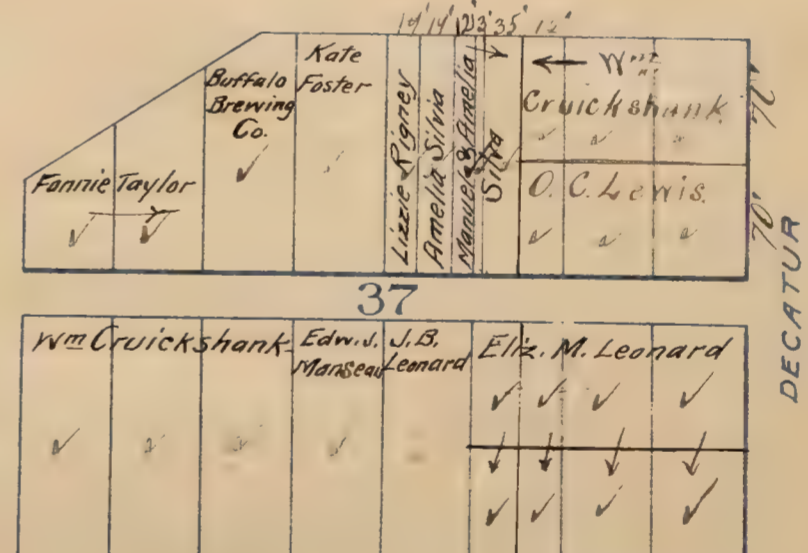 14' 14' 12' 3' 35' 12'
Kate
Foster
Buffalo
Brewing
Co.
Fannie Taylor
Lizzie Rigney
Amelia Silvia
Manuel & Amelia
Silva
Wm
Cruickshank
70'
O. C. Lewis.
70'
DECATUR
37
Wm Cruickshank
Edw. J.
Manseau
J. B.
Leonard
Eliz. M. Leonard